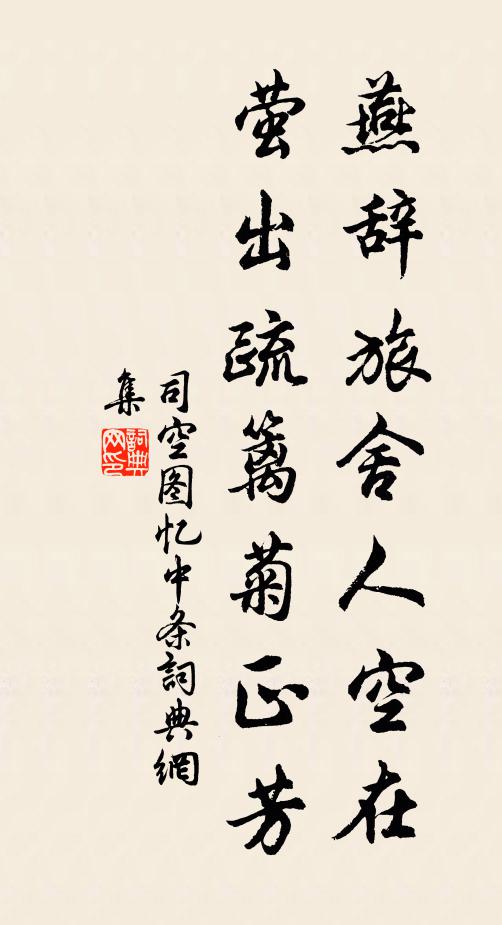 燕辞旅舍人空在
萤出疏篱菊正芳
司空图忆中条詞典網
集
詞典网印